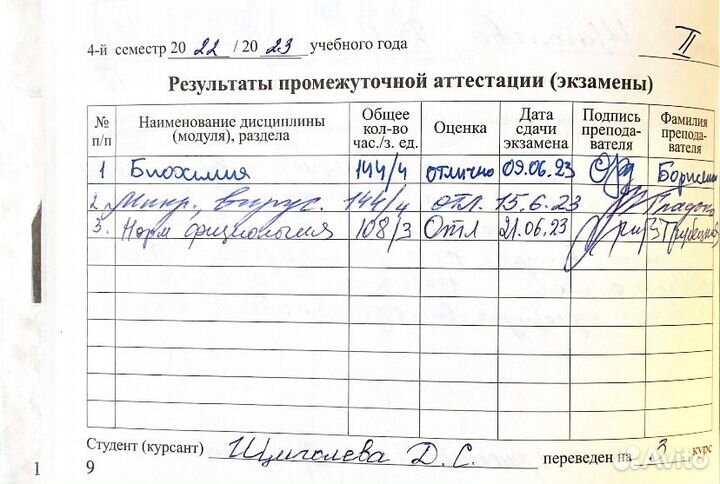 4-й семестр 20 22 / 20 23 учебного года II
Результаты промежуточной аттестации (экзамены)
№ п/п Наименование дисциплины (модуля), раздела Общее кол-во час./з. ед. Оценка Дата сдачи экзамена Подпись препода-вателя Фамилия препода-вателя
1 Биохимия 144/4 отлично 09.06.23
2. Микр., вирус. 144/4 отл. 15.6.23
3. Норм физиология 108/3 Отл 21.06.23
Студент (курсант) Щиголева Д.С. переведен на 3 курс
1 9
Avito